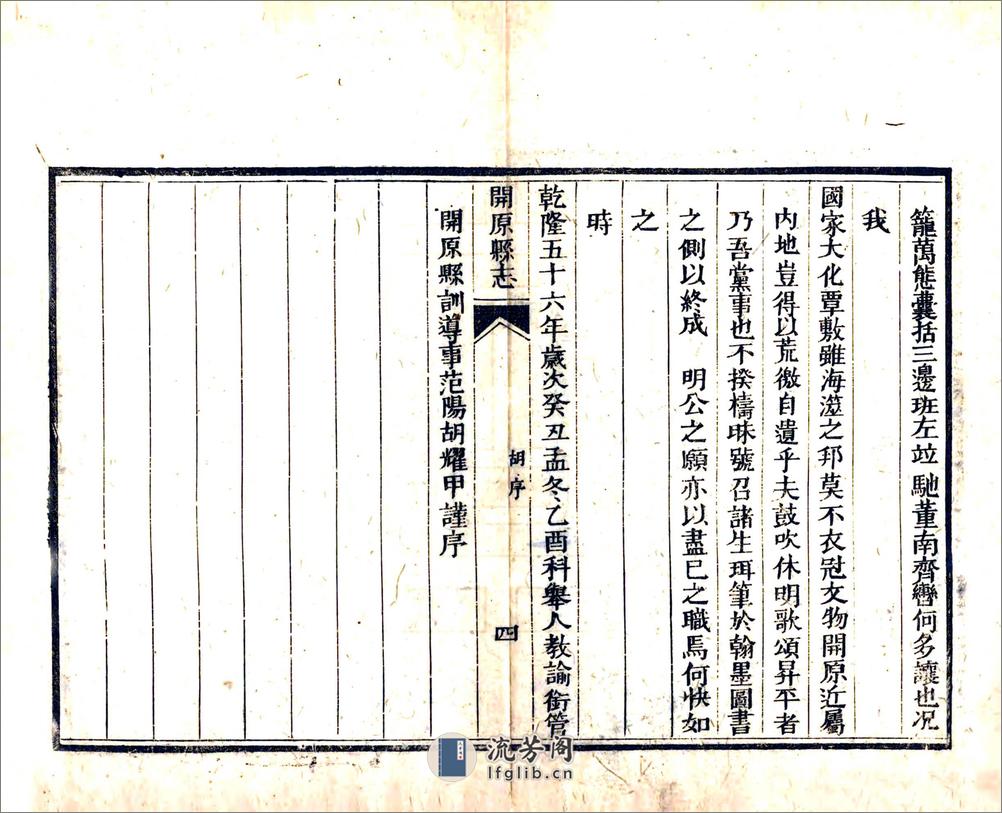 籠萬態囊括三邊班左竝馳董南齊轡何多讓也况
我
國家大化覃敷雖海澨之邦莫不衣冠文物開原近屬
內地豈得以荒徼自遺乎夫鼓吹休明歌頌昇平者
乃吾黨事也不揆檮昧號召諸生珥筆於翰墨圖書
之側以終成　明公之願亦以盡已之職焉何快如
之
時
乾隆五十六年歲次癸丑孟冬乙酉科舉人教諭銜管
開原縣志
胡序
四
開原縣訓導事范陽胡耀甲謹序
流芳阁
lfglib.cn